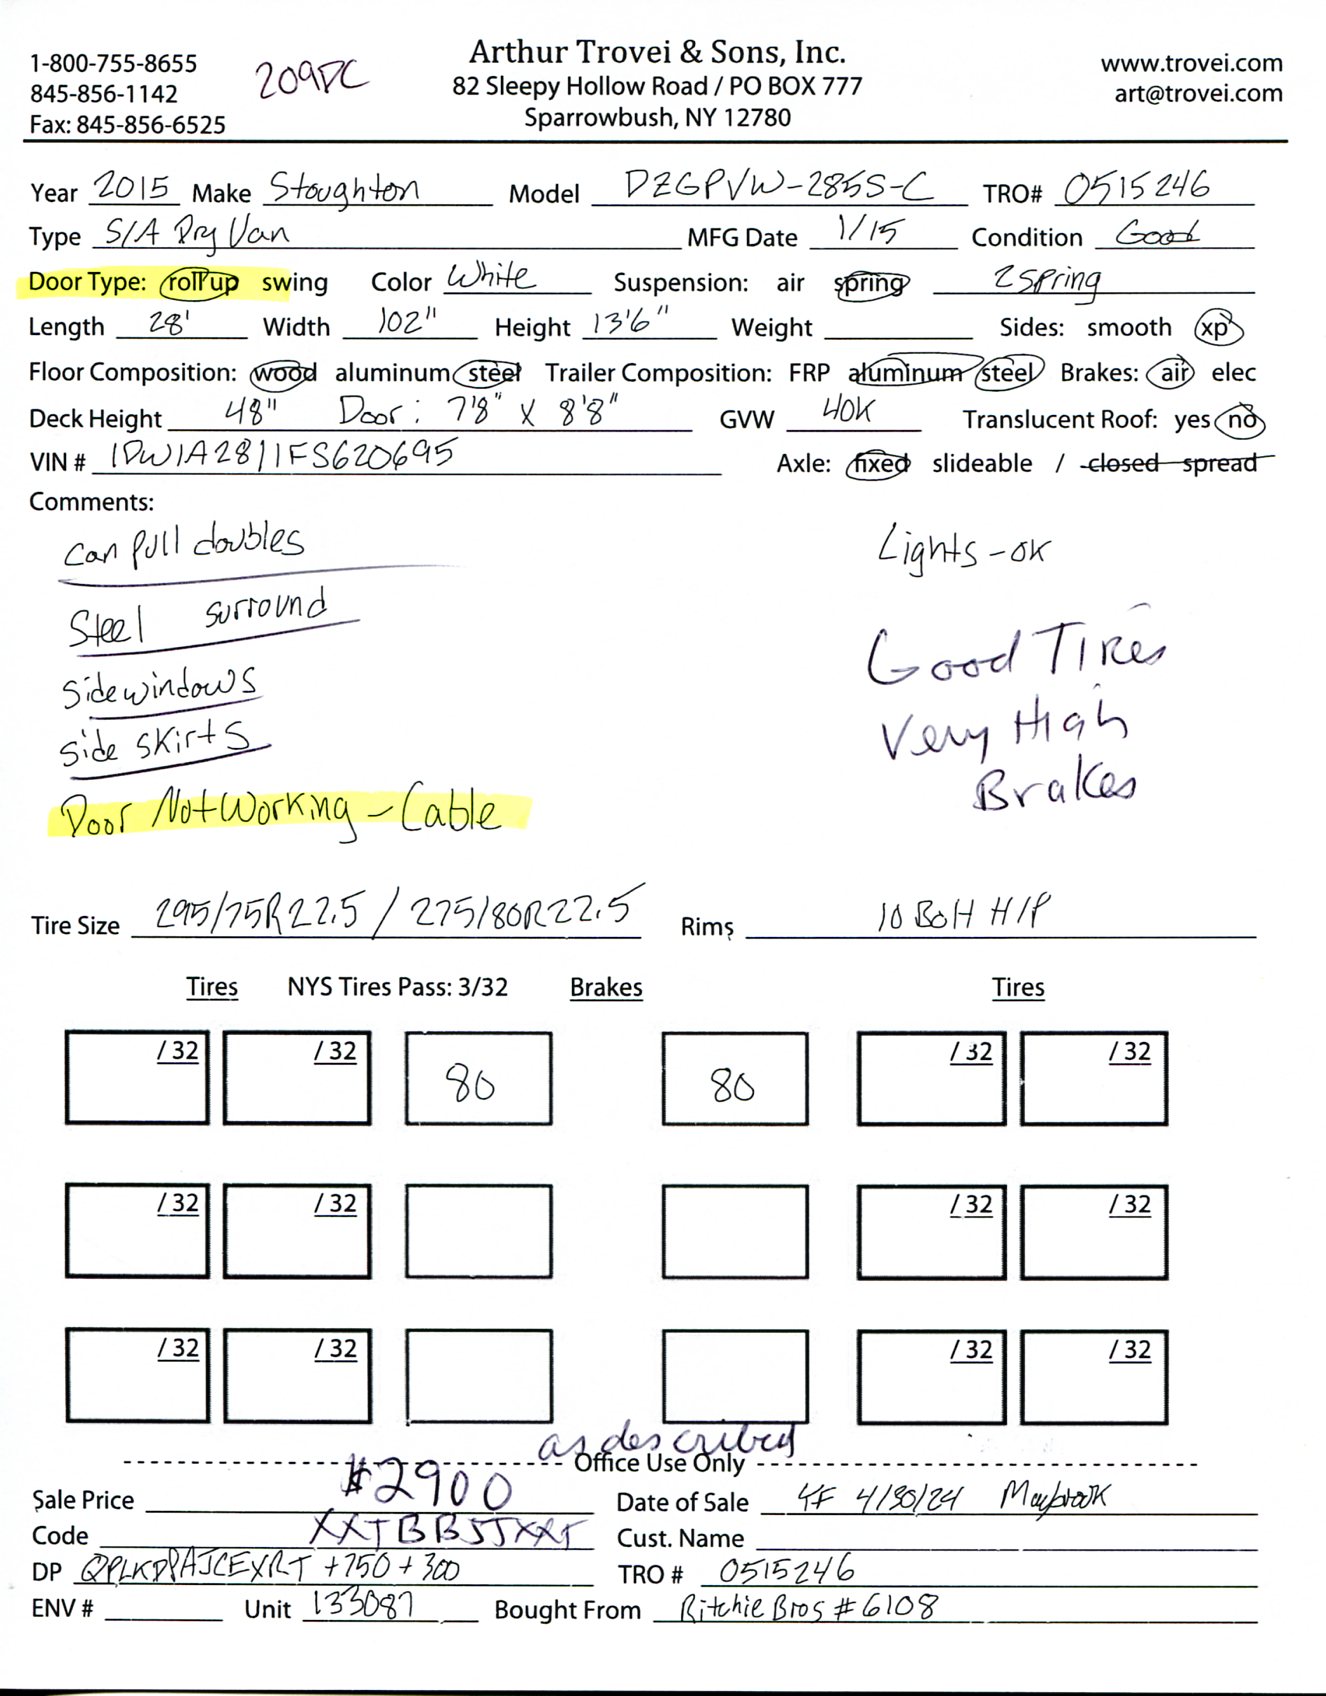 1-800-755-8655
845-856-1142
Fax: 845-856-6525
209DC
Arthur Trovei & Sons, Inc.
82 Sleepy Hollow Road / PO BOX 777
Sparrowbush, NY 12780
www.trovei.com
art@trovei.com
Year 2015 Make Stoughton Model DZGPVW-285S-C TRO# 0515246
Type S/A Dry Van MFG Date 1/15 Condition Good
Door Type: roll up swing Color White Suspension: air spring 2 spring
Length 28' Width 102" Height 13'6" Weight Sides: smooth xp
Floor Composition: wood aluminum steel Trailer Composition: FRP aluminum steel Brakes: air elec
Deck Height 48" Door: 7'8" X 8'8" GVW 40K Translucent Roof: yes no
VIN # 1DW1A2811FS620695 Axle: fixed slideable / closed spread
Comments:
can pull doubles
Steel surround
side windows
side skirts
Door Not Working - Cable
Lights - OK
Good Tires
Very High
Brakes
Tire Size 295/75R22.5 / 275/80R22.5 Rims 10 Bolt H/P
Tires NYS Tires Pass: 3/32 Brakes Tires
/ 32 / 32 80 80 / 32 / 32
/ 32 / 32 / 32 / 32
/ 32 / 32 / 32 / 32
as described
Office Use Only
Sale Price $2900 Date of Sale 4/30/24 Maybrook
Code Cust. Name
DP +750 + 300 TRO # 0515246
ENV # Unit 133087 Bought From Ritchie Bros #6108